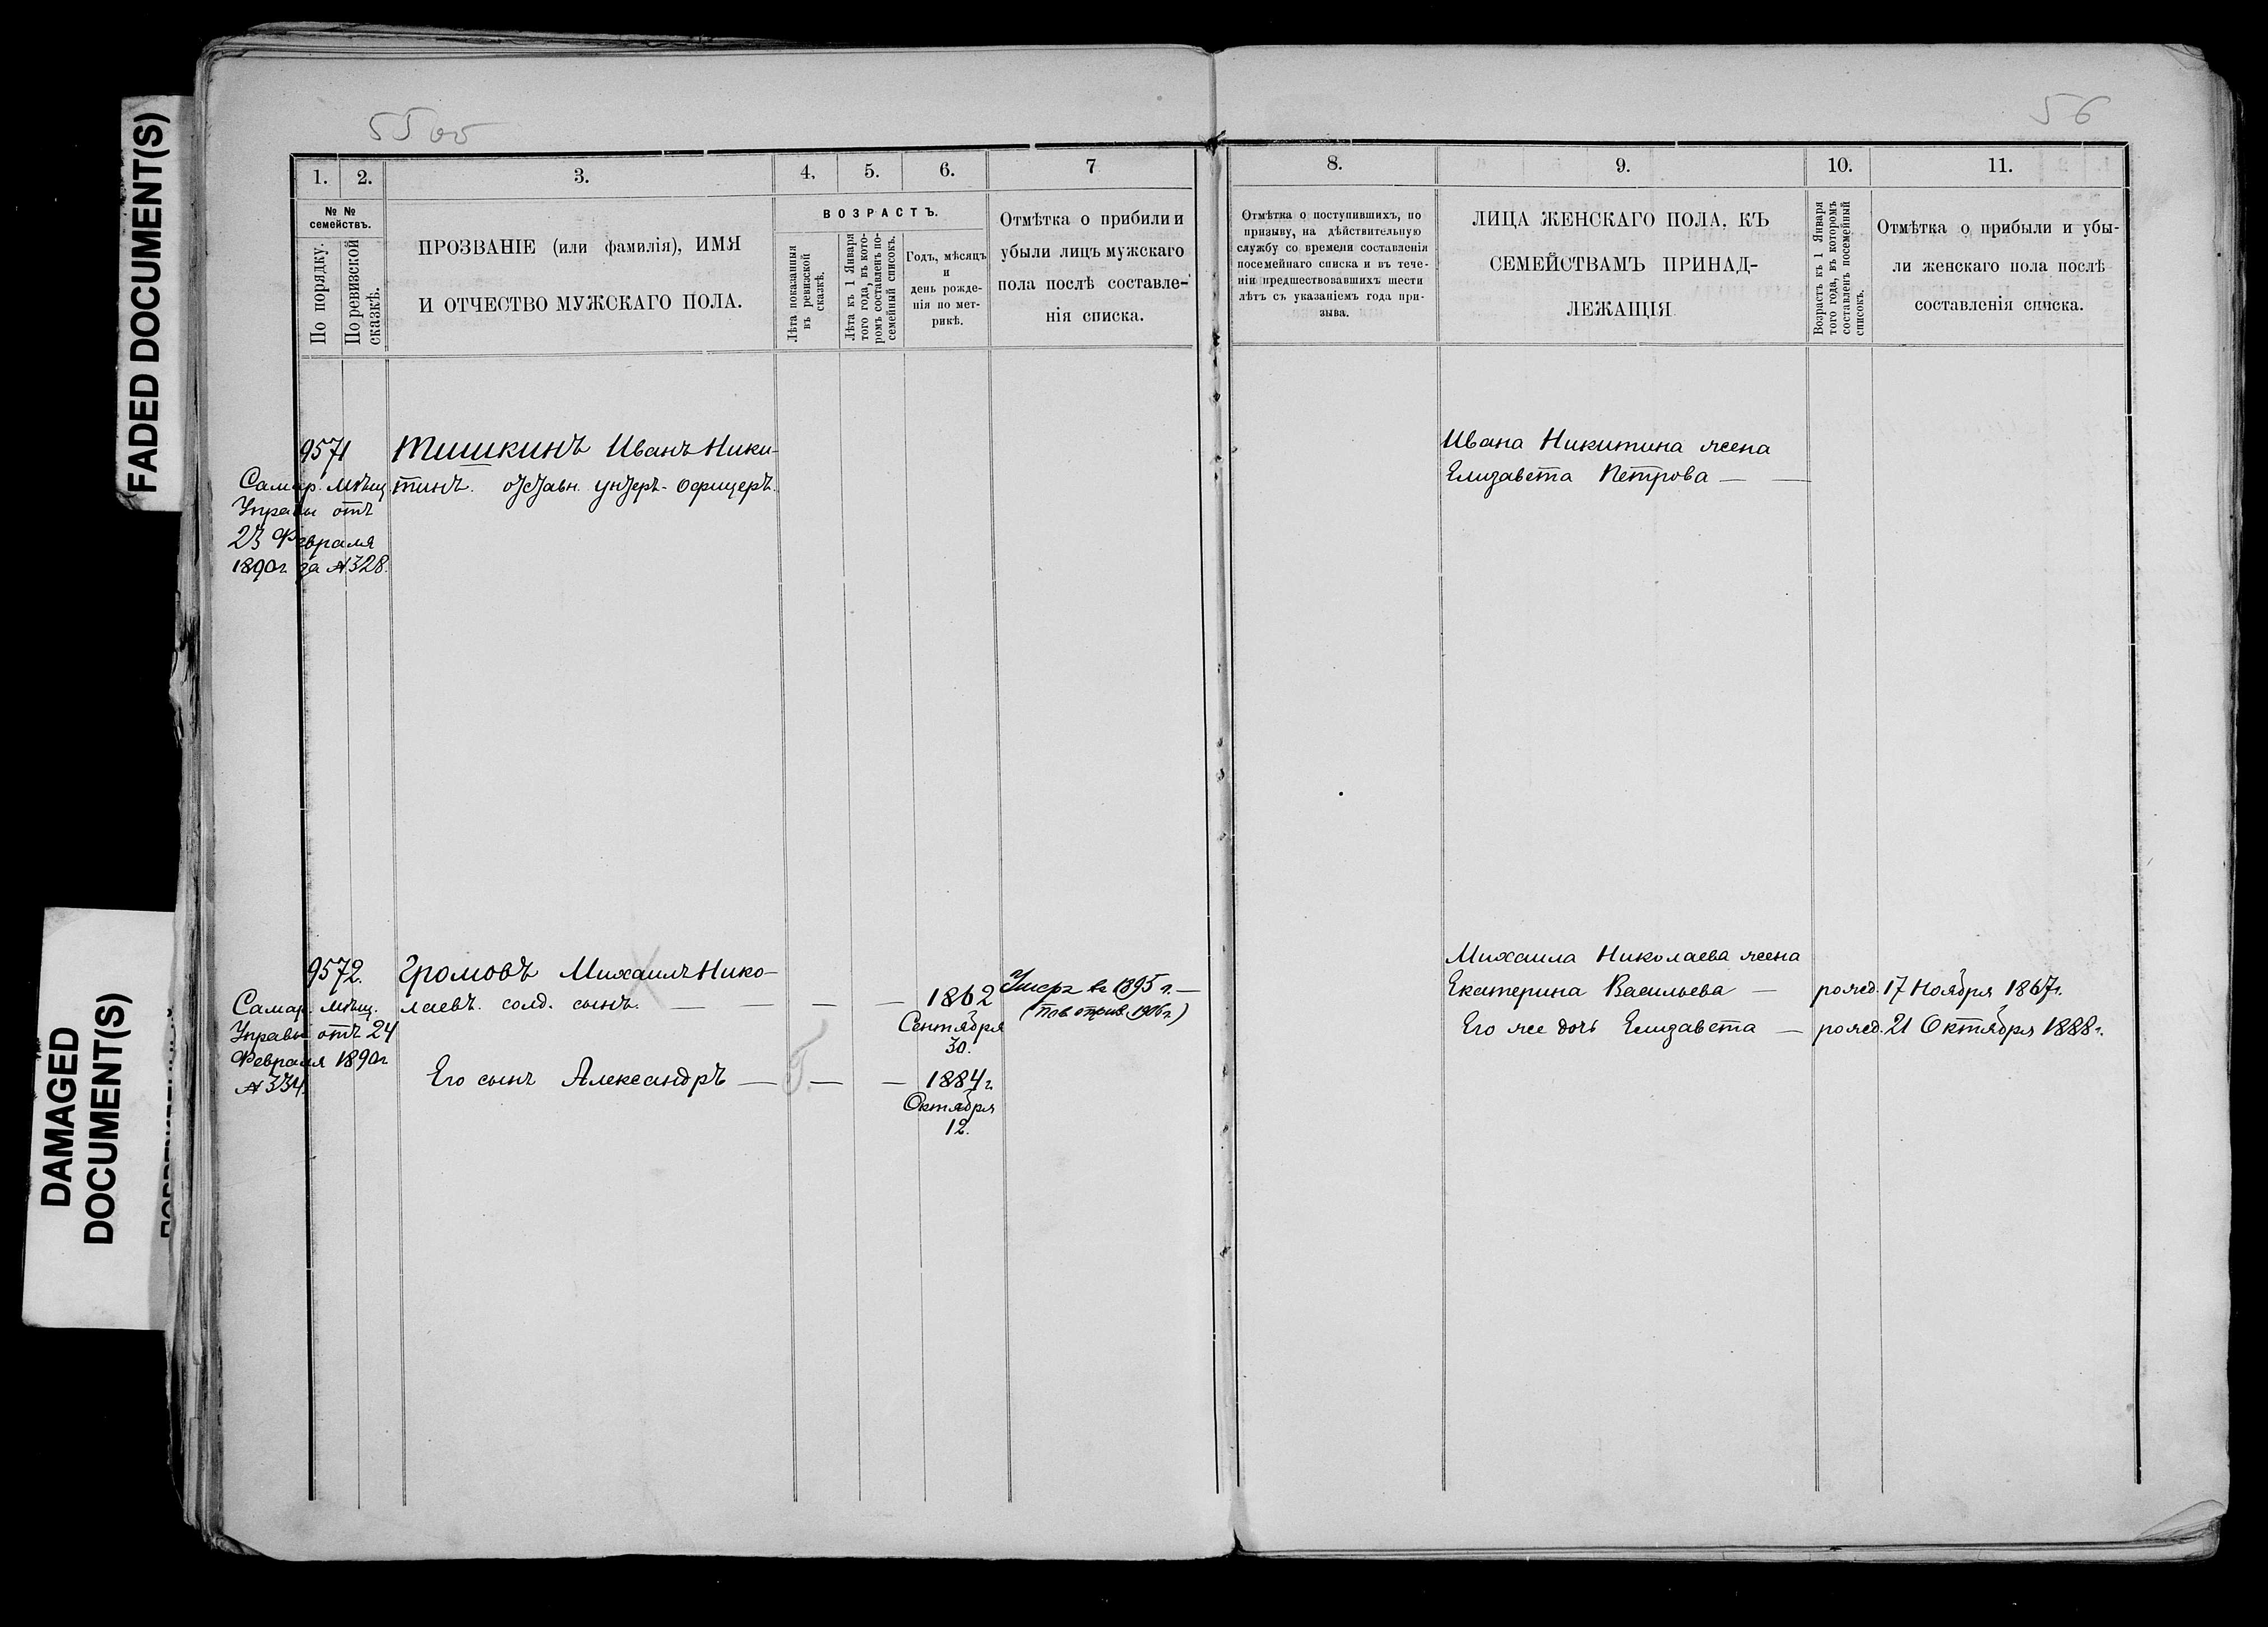 FADED DOCUMENT(S)
DAMAGED
DOCUMENT(S)
55 об
56
1.
2.
3.
4.
5.
6.
7
№ №
семействъ.
По порядку.
По ревизской
сказкѣ.
ПРОЗВАНІЕ (или фамилія), ИМЯ
И ОТЧЕСТВО МУЖСКАГО ПОЛА.
ВОЗРАСТЪ.
Лѣта показанныя
въ ревизской
сказкѣ.
Лѣта къ 1 Января
того года, въ кото-
ромъ составленъ по-
семейный списокъ.
Годъ, мѣсяцъ
и
день рожде-
нія по мет-
рикѣ.
Отмѣтка о прибыли и
убыли лицъ мужскаго
пола послѣ составле-
нія списка.
9571
Самар. Мѣщ.
Управы отъ
23 Февраля
1890 г. за № 328.
Тишкинъ Иванъ Ники-
тинъ. отставн. унтеръ-офицеръ.
9572.
Самар. Мѣщ.
Управы отъ 24
Февраля 1890 г.
№ 334.
Громовъ Михаилъ Нико-
лаевъ. солд. сынъ. — — — —
1862
Сентября
30.
Умеръ въ 1895 г. —
Его сынъ Александръ — — —
1884 г.
Октября
12.
8.
9.
10.
11.
Отмѣтка о поступившихъ, по
призыву, на дѣйствительную
службу со времени составленія
посемейнаго списка и въ тече-
ніи предшествовавшихъ шести
лѣтъ съ указаніемъ года при-
зыва.
ЛИЦА ЖЕНСКАГО ПОЛА, КЪ
СЕМЕЙСТВАМЪ ПРИНАД-
ЛЕЖАЩІЯ
Возрастъ къ 1 Января
того года, въ которомъ
составленъ посемейный
списокъ.
Отмѣтка о прибыли и убы-
ли женскаго пола послѣ
составленія списка.
Ивана Никитина жена
Елизавета Петрова — —
Михаила Николаева жена
Екатерина Васильева — рожд. 17 Ноября 1867 г.
Его же дочь Елизавета — рожд. 21 Октября 1888 г.